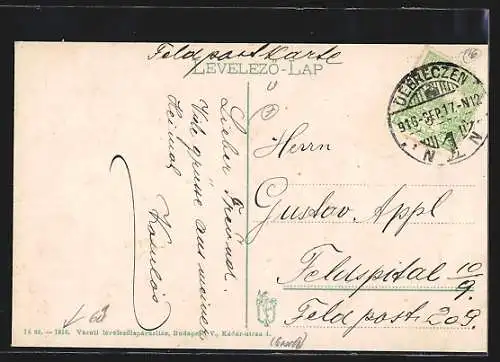 Feldpostkarte
LEVELEZŐ-LAP
DEBRECZEN
916-SEP.17-N12
Lieber Freund..
Viele grüsse aus meiner
Heimat
Herrn
Gustav. Appl
Feldspital 10/9.
Feldpost 209.
1916. Vasuti levelezőlapárusítás, Budapest V., Kádár-utca 4.